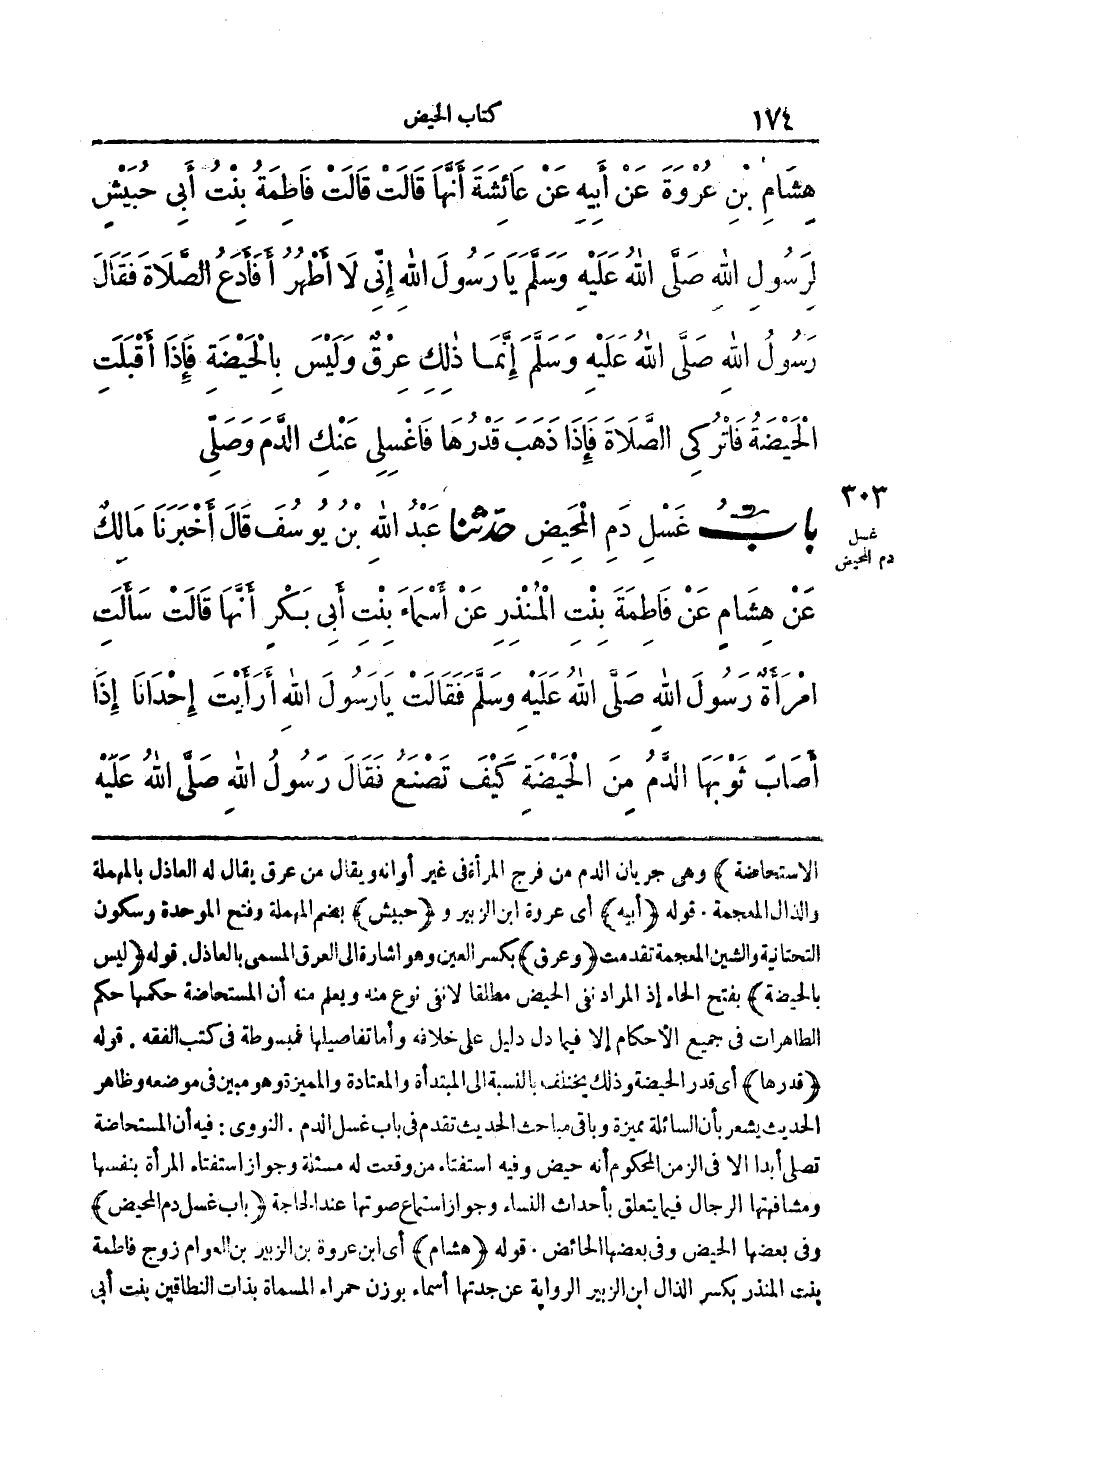 ١٧٤
كتاب الحيض
هِشَامِ بْنِ عُرْوَةَ عَنْ أَبِيهِ عَنْ عَائِشَةَ أَنَّهَا قَالَتْ قَالَتْ فَاطِمَةُ بِنْتُ أَبِي حُبَيْشٍ
لِرَسُولِ اللهِ صَلَّى اللهُ عَلَيْهِ وَسَلَّمَ يَا رَسُولَ اللهِ إِنِّي لَا أَطْهُرُ أَفَأَدَعُ الصَّلَاةَ فَقَالَ
رَسُولُ اللهِ صَلَّى اللهُ عَلَيْهِ وَسَلَّمَ إِنَّمَا ذٰلِكِ عِرْقٌ وَلَيْسَ بِالْحَيْضَةِ فَإِذَا أَقْبَلَتِ
الْحَيْضَةُ فَاتْرُكِي الصَّلَاةَ فَإِذَا ذَهَبَ قَدْرُهَا فَاغْسِلِي عَنْكِ الدَّمَ وَصَلِّي
٣٠٣
غسل
دم المحيض
بابُ غَسْلِ دَمِ الْمَحِيضِ حَدَّثنا عَبْدُ اللهِ بْنُ يُوسُفَ قَالَ أَخْبَرَنَا مَالِكٌ
عَنْ هِشَامٍ عَنْ فَاطِمَةَ بِنْتِ الْمُنْذِرِ عَنْ أَسْمَاءَ بِنْتِ أَبِي بَكْرٍ أَنَّهَا قَالَتْ سَأَلَتِ
امْرَأَةٌ رَسُولَ اللهِ صَلَّى اللهُ عَلَيْهِ وَسَلَّمَ فَقَالَتْ يَارَسُولَ اللهِ أَرَأَيْتَ إِحْدَانَا إِذَا
أَصَابَ ثَوْبَهَا الدَّمُ مِنَ الْحَيْضَةِ كَيْفَ تَصْنَعُ فَقَالَ رَسُولُ اللهِ صَلَّى اللهُ عَلَيْهِ
الاستحاضة﴾ وهى جريان الدم من فرج المرأة فى غير أوانه ويقال من عرق يقال له العاذل بالمهملة
والذال المعجمة. قوله ﴿أبيه﴾ أى عروة ابن الزبير و﴿حبيش﴾ بضم المهملة وفتح الموحدة وسكون
التحتانية والشين المعجمة تقدمت ﴿وعرق﴾ بكسر العين وهو اشارة الى العرق المسمى بالعاذل. قوله ﴿ليس
بالحيضة﴾ بفتح الحاء إذ المراد نفى الحيض مطلقا لا نفى نوع منه ويعلم منه أن المستحاضة حكمها حكم
الطاهرات فى جميع الأحكام إلا فيما دل دليل على خلافه وأما تفاصيلها فمبسوطة فى كتب الفقه. قوله
﴿قدرها﴾ أى قدر الحيضة وذلك يختلف بالنسبة الى المبتدأة والمعتادة والمميزة وهو مبين فى موضعه وظاهر
الحديث يشعر بأن السائلة مميزة وباقى مباحث الحديث تقدم فى باب غسل الدم. النووى: فيه أن المستحاضة
تصلى أبدا الا فى الزمن المحكوم أنه حيض وفيه استفتاء من وقعت له مسئلة وجواز استفتاء المرأة بنفسها
ومشافهتها الرجال فيما يتعلق بأحداث النساء وجواز استماع صوتها عند الحاجة ﴿باب غسل دم المحيض﴾
وفى بعضها الحيض وفى بعضها الحائض. قوله ﴿هشام﴾ أى ابن عروة بن الزبير بن العوام زوج فاطمة
بنت المنذر بكسر الذال ابن الزبير الرواية عن جدتها أسماء بوزن حمراء المسماة بذات النطاقين بنت أبى